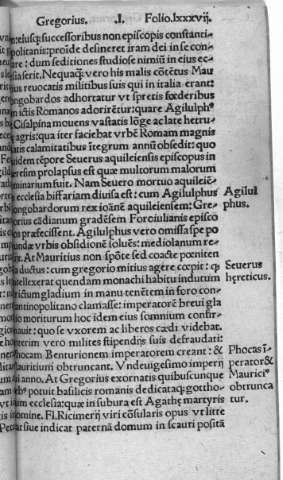 Gregorius. .I. Folio.lxxxvij.
eiusq; successoribus non episcopis constanti-
politanis: proide desineret iram dei in se con-
re: dum seditiones studiose nimiū in eius ec-
clesia serit. Nequaq̄; vero his malis cōtētus Mau
ius reuocatis militibus suis qui in italia erant:
ongobardos adhortatur vt spretis fœderibus
ictis Romanos adorirētur: quare Agilulph9
Cisalpina mouens vastatis lōge ac late hetru-
agris: qua iter faciebat vrbē Romam magnis
calamitatibus ītegrum annū obsedit: quo
idem tēpore Seuerus aquileiensis episcopus in
resim prolapsus est quæ multorum malorum
seminarium fuit. Nam Seuero mortuo aquileiē-
ecclesia biffariam diuisa est: cum Agilulphus
ongobardorum rex ioānē aquileiensem: Gre-
cādianum gradēsem Foroiulianis episco
præfecissent. Agilulphus vero omissa spe po
undæ vrbis obsidionē soluēs: mediolanum re-
At Mauritius non spōte sed coacte pœniten
ductus: cum gregorio mitius agere cœpit: q;
intellexerat quendam monachi habitu indutum
gladium in manu tenētem in foro con-
stantinopolitano clamasse: imperatorē breui gla
dio moriturum hoc idem eius somnium confir-
mauit: quo se vxorem ac liberos cædi videbat.
vero milites stipendijs suis defraudati:
Phocam Benturionem imperatorem creant: &
Mauritium obtruncant. Vndeuigesimo imperij
anno. At Gregorius exornatis quibuscunque
potuit basilicis romanis dedicatoq; gottho-
ecclesia: quæ in subura est Agathę martyris
nomine. Fl. Ricimerij viri cōsularis opus vt litte
indicat paternā domum in scauri positā
Agilul
phus.
Seuerus
hęreticus.
Phocas ī-
perator&
Maurici9
obtrunca
tur.